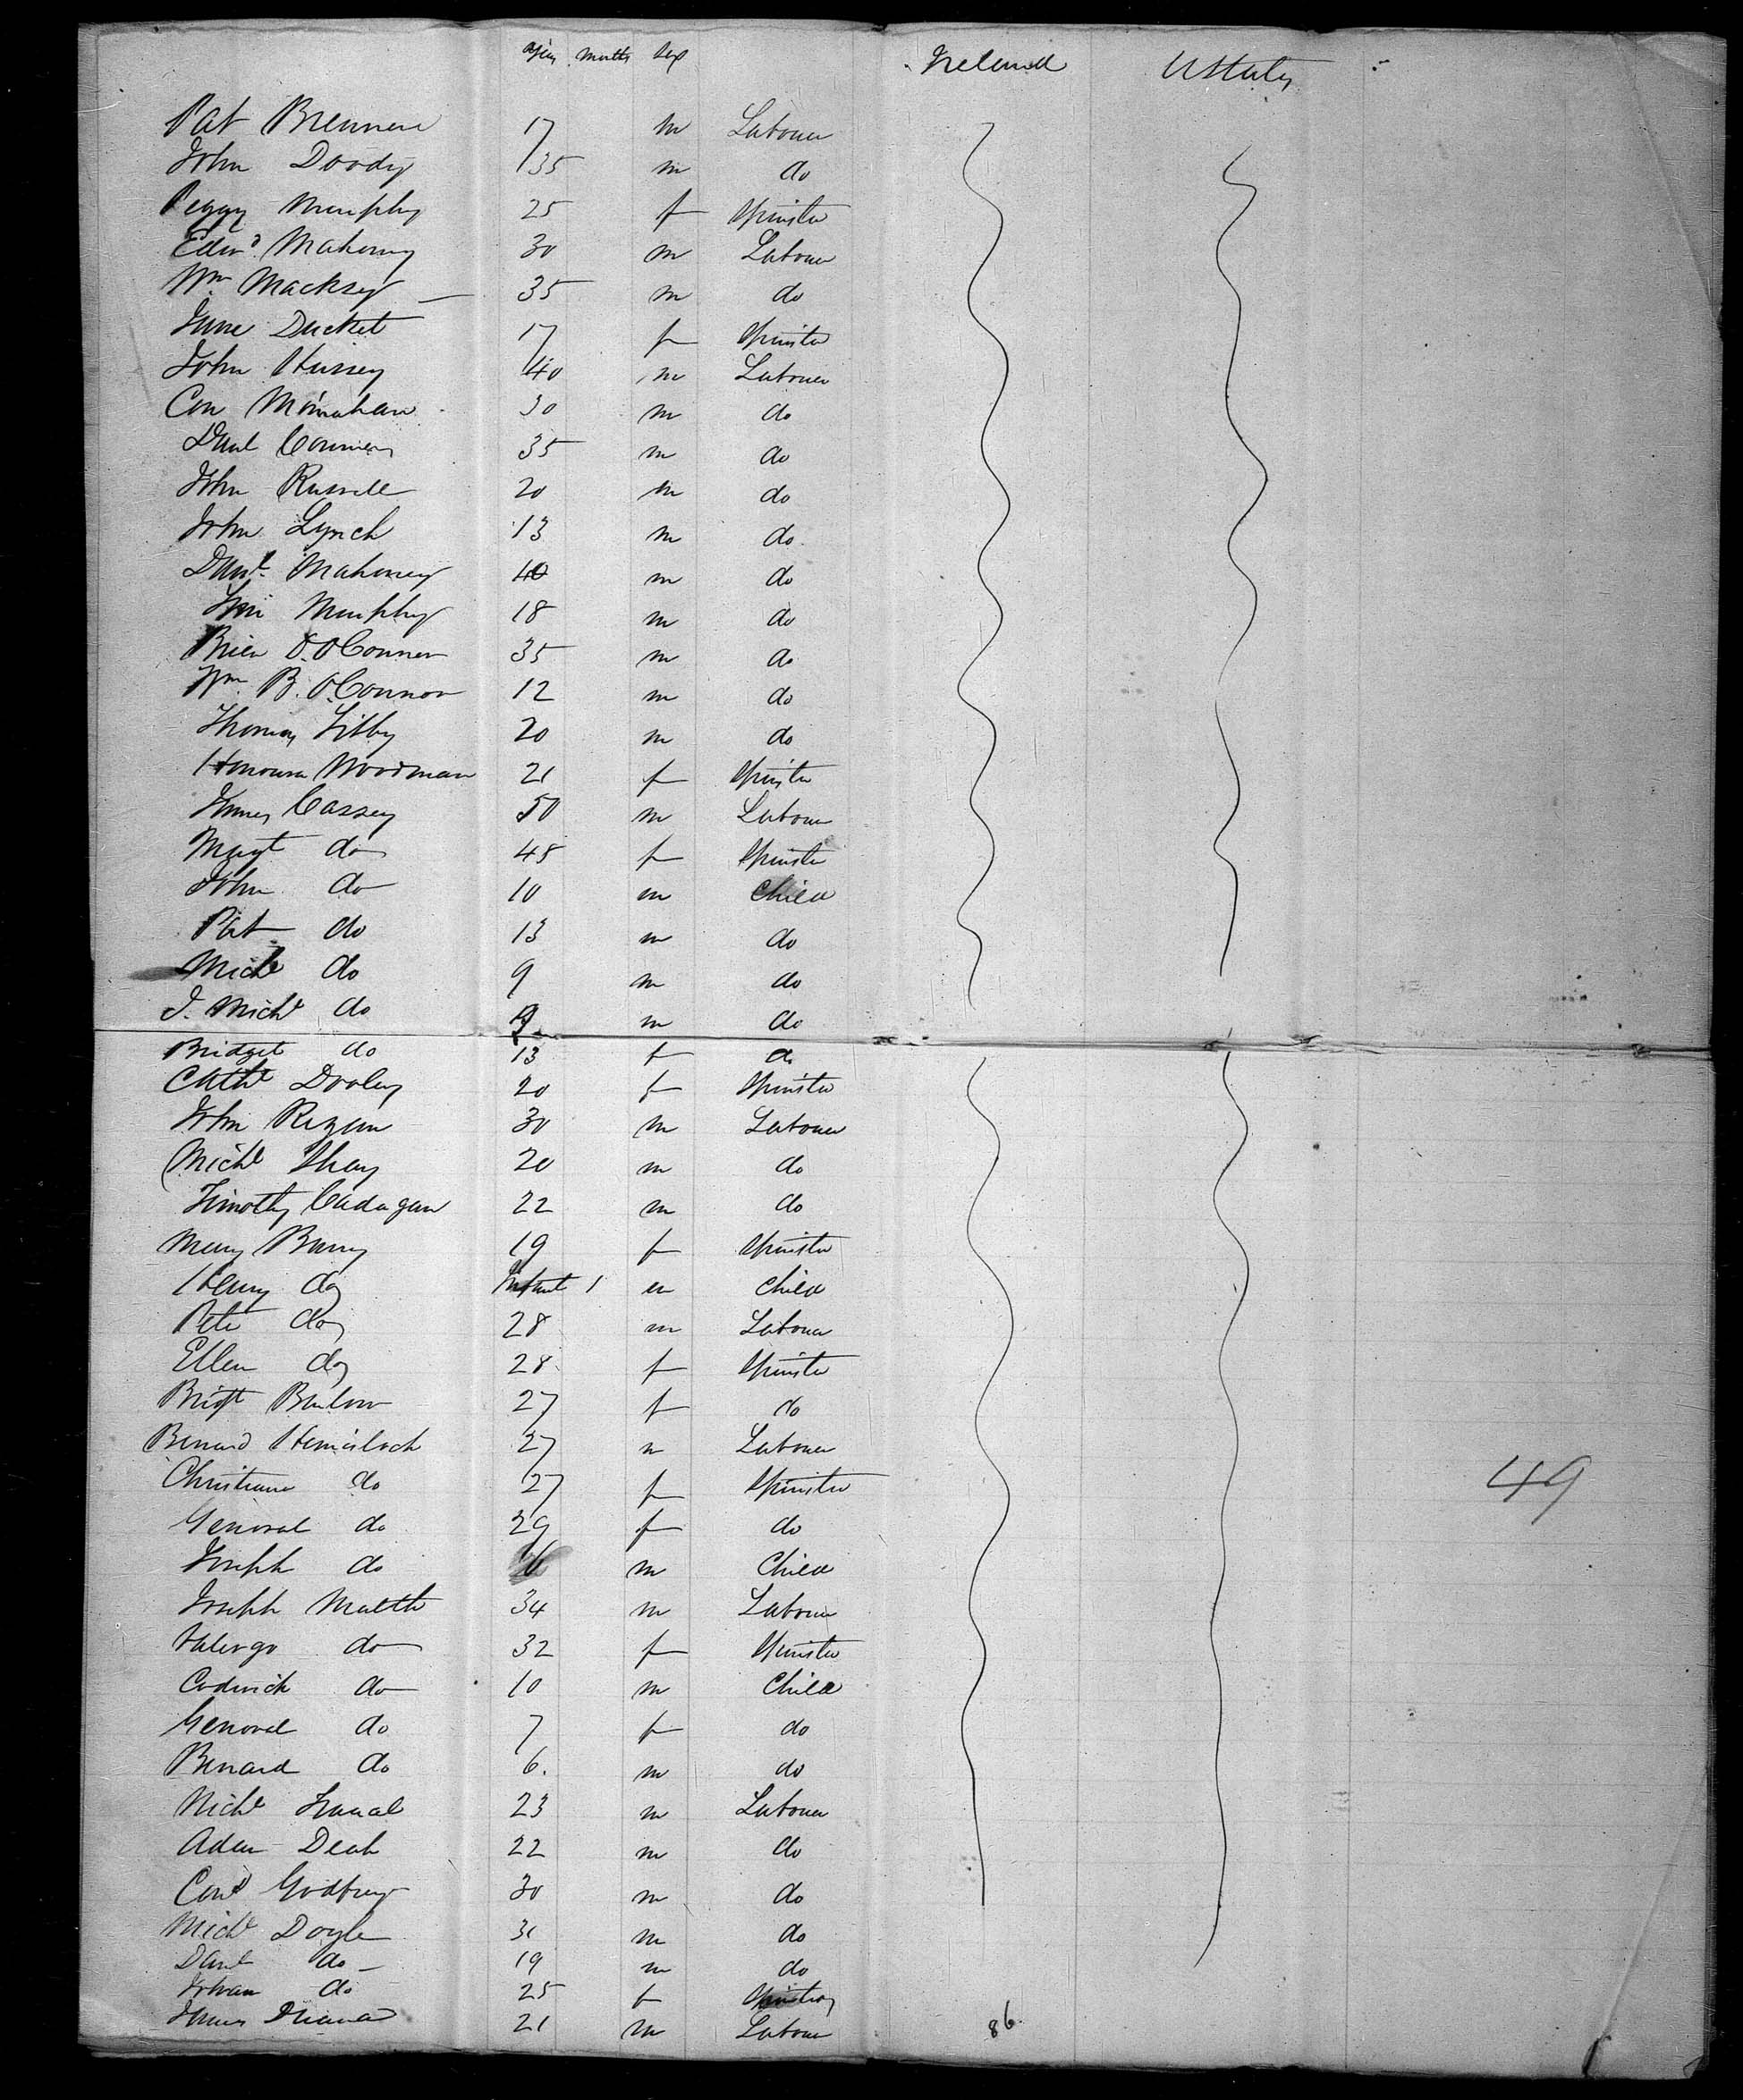 Years Months Sex Ireland UStates
Pat Brennen 17 m Labourer
John Doody 35 m do
Peggy Murphy 25 f Spinster
Edwd Mahoney 30 m Labourer
Wm Macksey 35 m do
Jane Ducket 17 f Spinster
John Hussey 40 m Labourer
Con Monahan 30 m do
Danl Connors 35 m do
John Russell 20 m do
John Lynch 13 m do
Danl Mahoney 40 m do
Murphy 18 m do
Brien O.OConnor 35 m do
Wm B. OConnor 12 m do
Thomas 20 m do
Honoura Woodman 21 f Spinster
James Cassey 50 m Labourer
Margt do 45 f Spinster
John do 10 m Child
Pat do 13 m do
Michl do 9 m do
J. Michl do m do
Bridget do 13 f do
Cathe Dooley 20 f Spinster
John Regan 30 m Labourer
Michl 20 m do
Timothy Cadagan 22 m do
Mary Barry 19 f Spinster
Henry do Infant 1 m Child
Peter do 28 m Labourer
Ellen do 28 f Spinster
Brigt Barlow 27 f do
Benard 27 m Labourer
Christiana do 27 f Spinster
49
Genoval do 29 f do
Joseph do 6 m Child
Joseph Malth 34 m Labourer
do 32 f Spinster
do 10 m Child
Genoval do 7 f do
Benard do 6. m do
Michl 23 m Labourer
Adam 22 m do
Cond Godfrey 30 m do
Michl Doyle 31 m do
Danl do 19 m do
Johan do 25 f Spinster
James 21 m Labourer
86